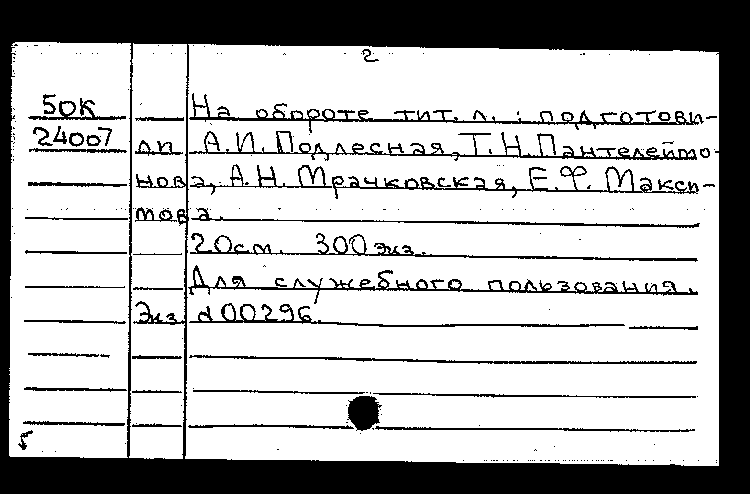 2
50К На обороте тит. л. : подготови-
24007 ли А.И. Подлесная, Т.Н. Пантелеймо-
нова, А.Н. Мрачковская, Е.Ф. Макси-
мова.
20см. 300 экз.
Для служебного пользования.
Экз. 00296.
5